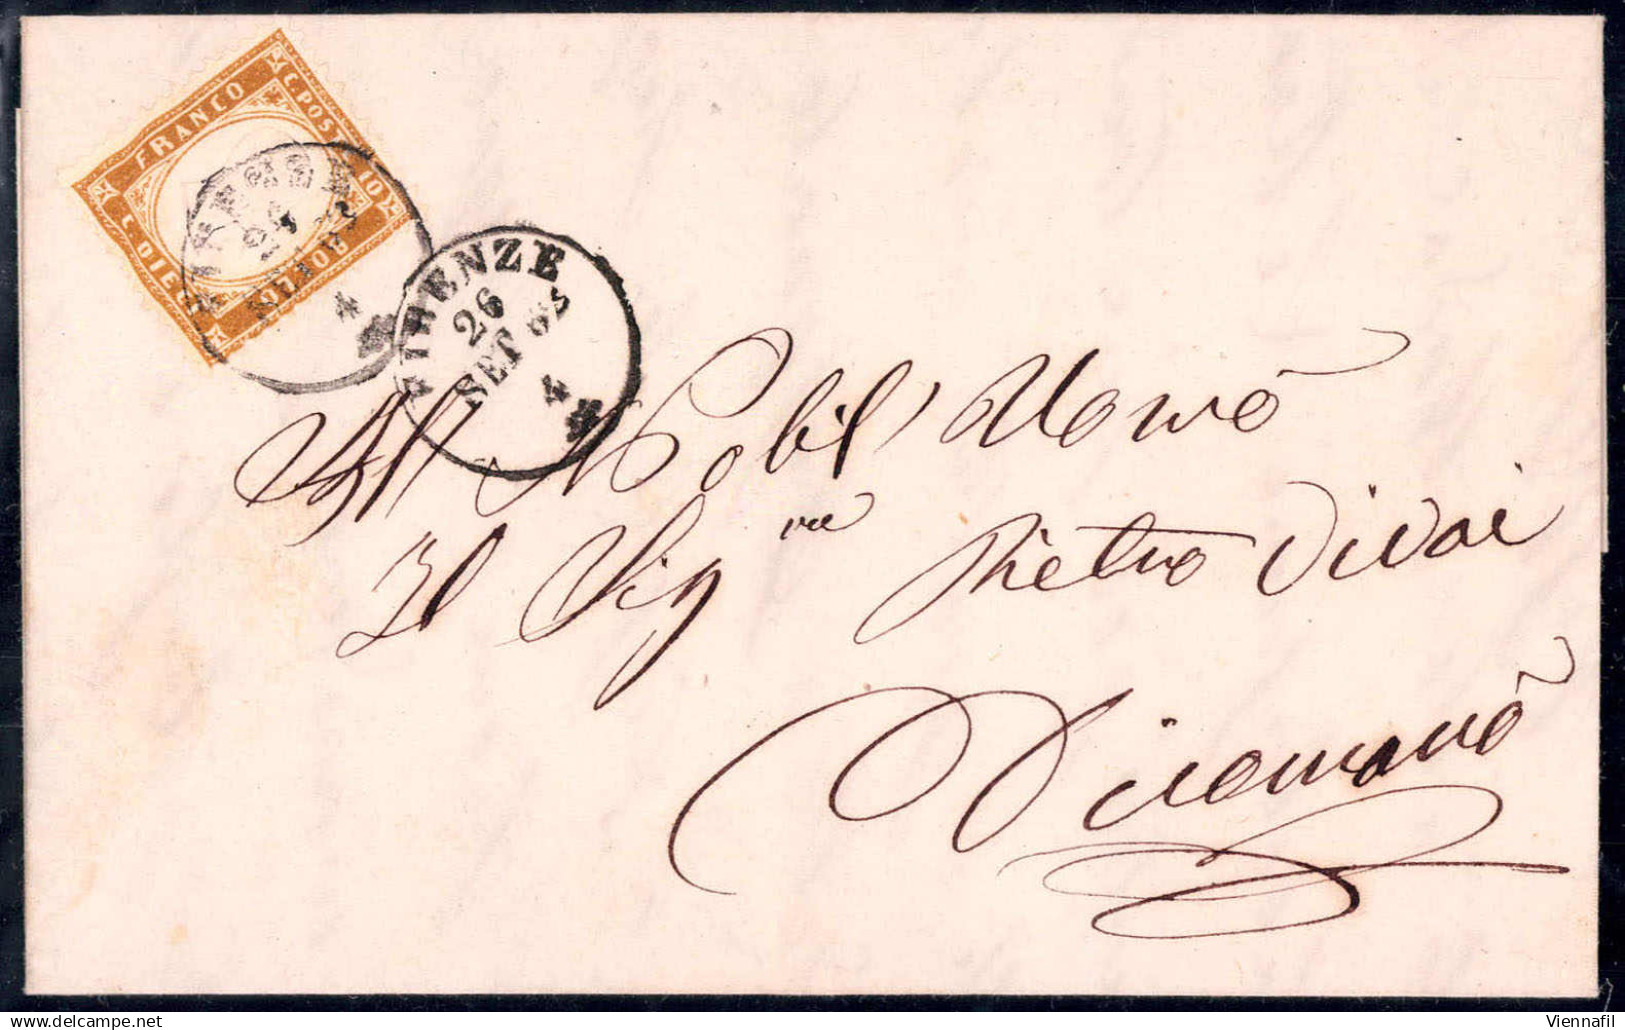 FRANCO
C. POST. 10
C. DIECI
BOLLO
FIRENZE
26
SET 62
4
FIRENZE
26
SET 62
4
All Nobil Uomo
Il Sig re Pietro Vivai
Dicomano
www.delcampe.net
Viennafil